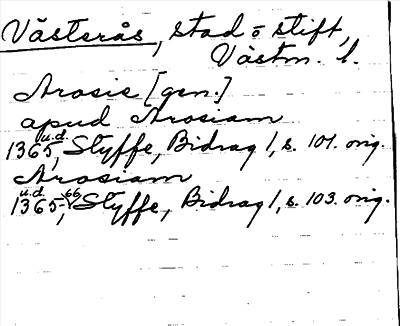 Västerås, stad o stift,
Västm. l.
Arosie [gen.]
apud Arosiam
1365 u.d., Styffe, Bidrag 1, s. 101. orig.
Arosiam
1365-66 u.d., Styffe, Bidrag 1, s. 103. orig.